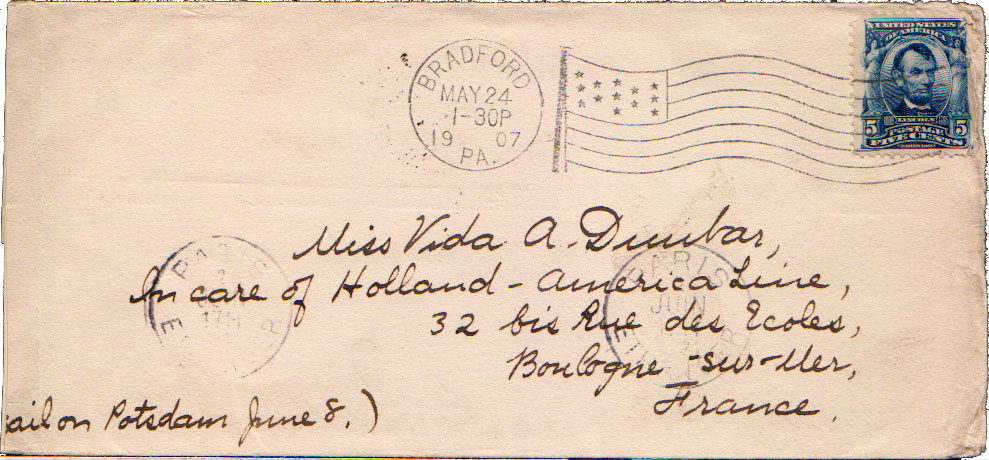 BRADFORD
MAY 24
1-30P
19 07
PA.
UNITED STATES
OF AMERICA
LINCOLN
5 POSTAGE 5
FIVE CENTS
Miss Vida A. Dunbar,
In care of Holland-America Line,
32 bis Rue des Ecoles,
Boulogne-sur-Mer,
France.
ail on Potsdam June 8.)
PARIS
17H
E R
PARIS
JUIN